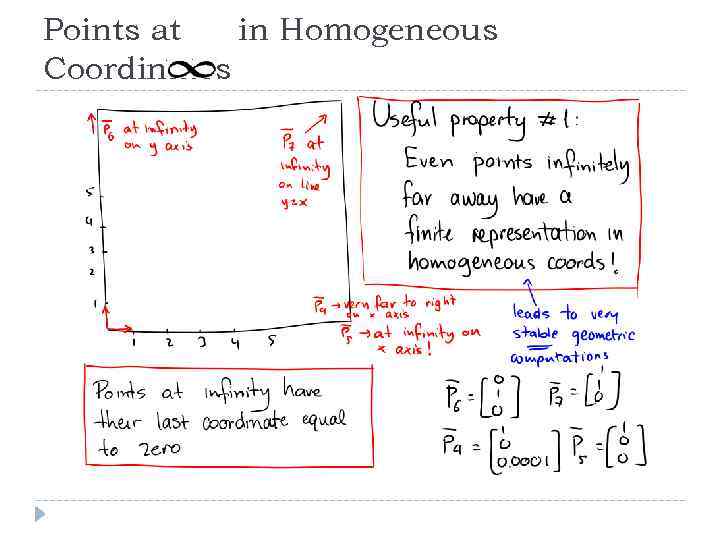 Points at ∞ in Homogeneous
Coordin s
P̅6 at infinity
on y axis
P̅7 at
infinity
on line
y=x
5
4
3
2
1
1 2 3 4 5
P̅4 → very far to right
on x axis
P̅5 → at infinity on
x axis!
Useful property #1:
Even points infinitely
far away have a
finite representation in
homogeneous coords!
leads to very
stable geometric
computations
Points at infinity have
their last coordinate equal
to zero
P̅6 = [0 1 0] P̅7 = [1 1 0]
P̅4 = [1 0 0.0001] P̅5 = [1 0 0]